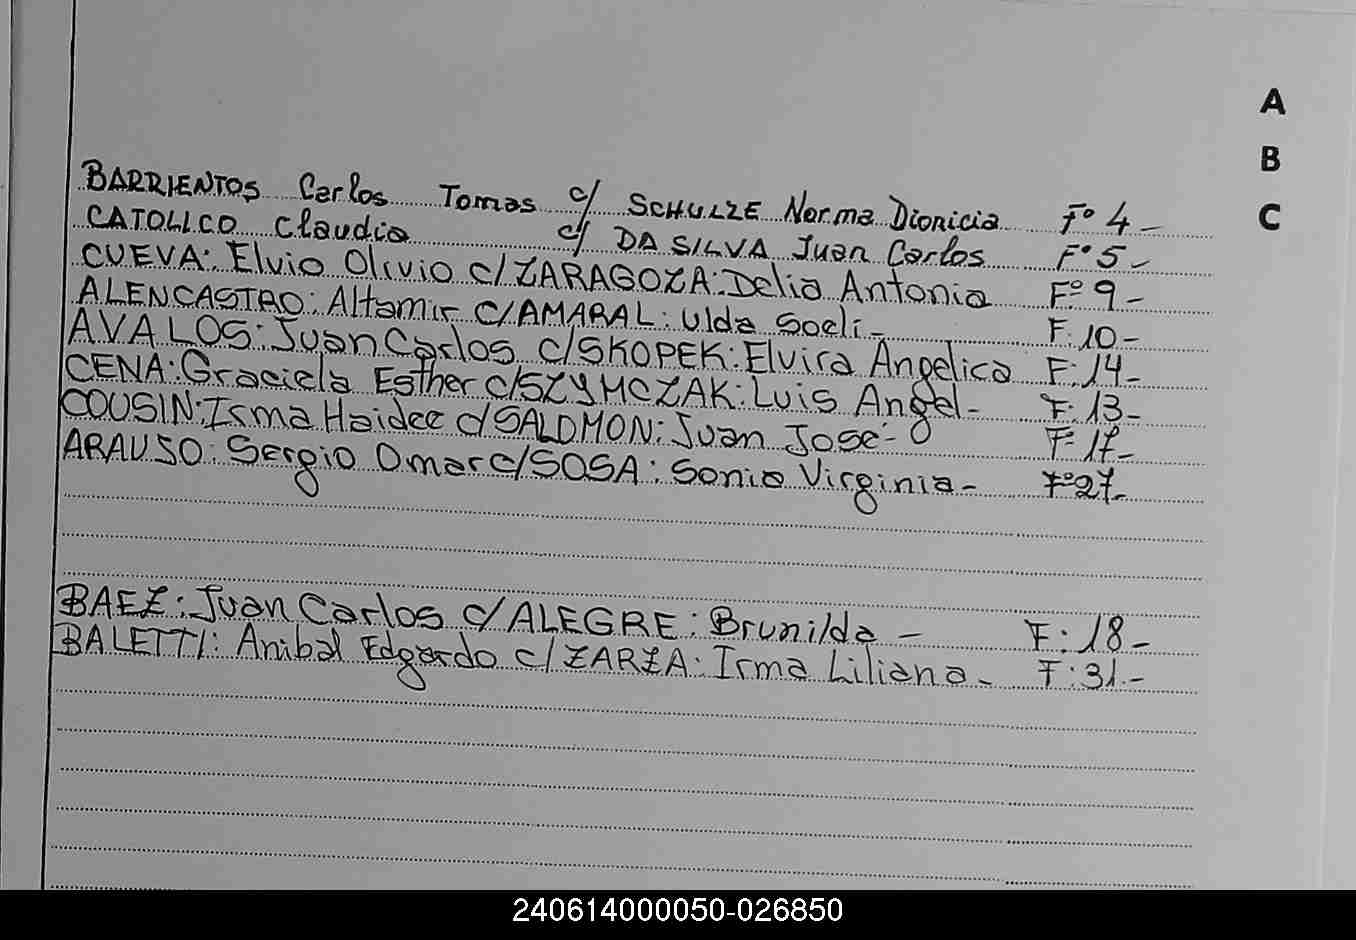 A
B
C
BARRIENTOS Carlos Tomas c/ SCHULZE Norma Dionicia F° 4-
CATOLICO Claudia c/ DA SILVA Juan Carlos F° 5-
CUEVA: Elvio Olivio c/ZARAGOZA: Delia Antonia F° 9-
ALENCASTRO: Altamir c/AMARAL: Ulda Soeli- F: 10-
AVALOS: Juan Carlos c/SKOPEK: Elvira Angelica F: 14-
CENA: Graciela Esther c/SZYMCZAK: Luis Angel- F: 13-
COUSIN: Irma Haidee c/SALOMON: Juan José- F: 17-
ARAUSO: Sergio Omar c/SOSA: Sonia Virginia- F° 27-
BAEZ: Juan Carlos c/ALEGRE: Brunilda - F: 18-
BALETTI: Anibal Edgardo c/ZARZA: Irma Liliana- F: 31.-
240614000050-026850